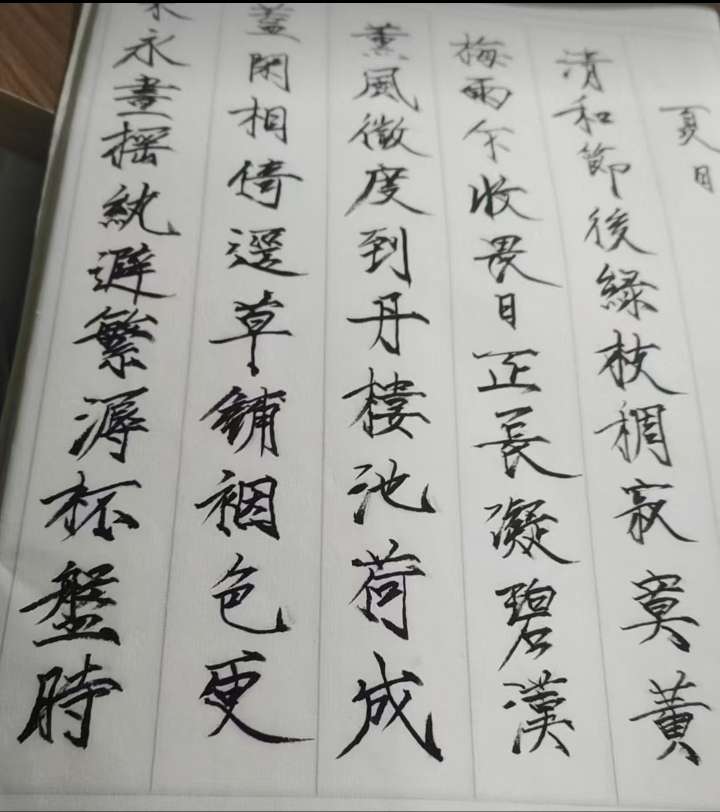 夏日
清和節後綠枝稠寂寞黄
梅雨乍收畏日正長凝碧漢
薰風微度到丹樓池荷成
蓋閑相倚逕草鋪裀色更
永晝搖紈避繁溽杯盤時